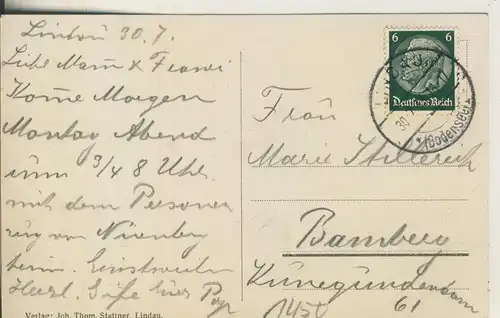 Lindau 30.7.
Liebe Mam & Franzi
Kome Morgen
Montag Abend
um 3/4 8 Uhr
mit dem Personen
zug von Nürnberg
heim. Einstweilen
Herzl. Grüße Euer Pap
Verlag: Joh. Thom. Stettner, Lindau.
6 6
Deutsches Reich
30
(Bodensee)
Frau
Marie
Bamberg
Kunegundendam
61
1450